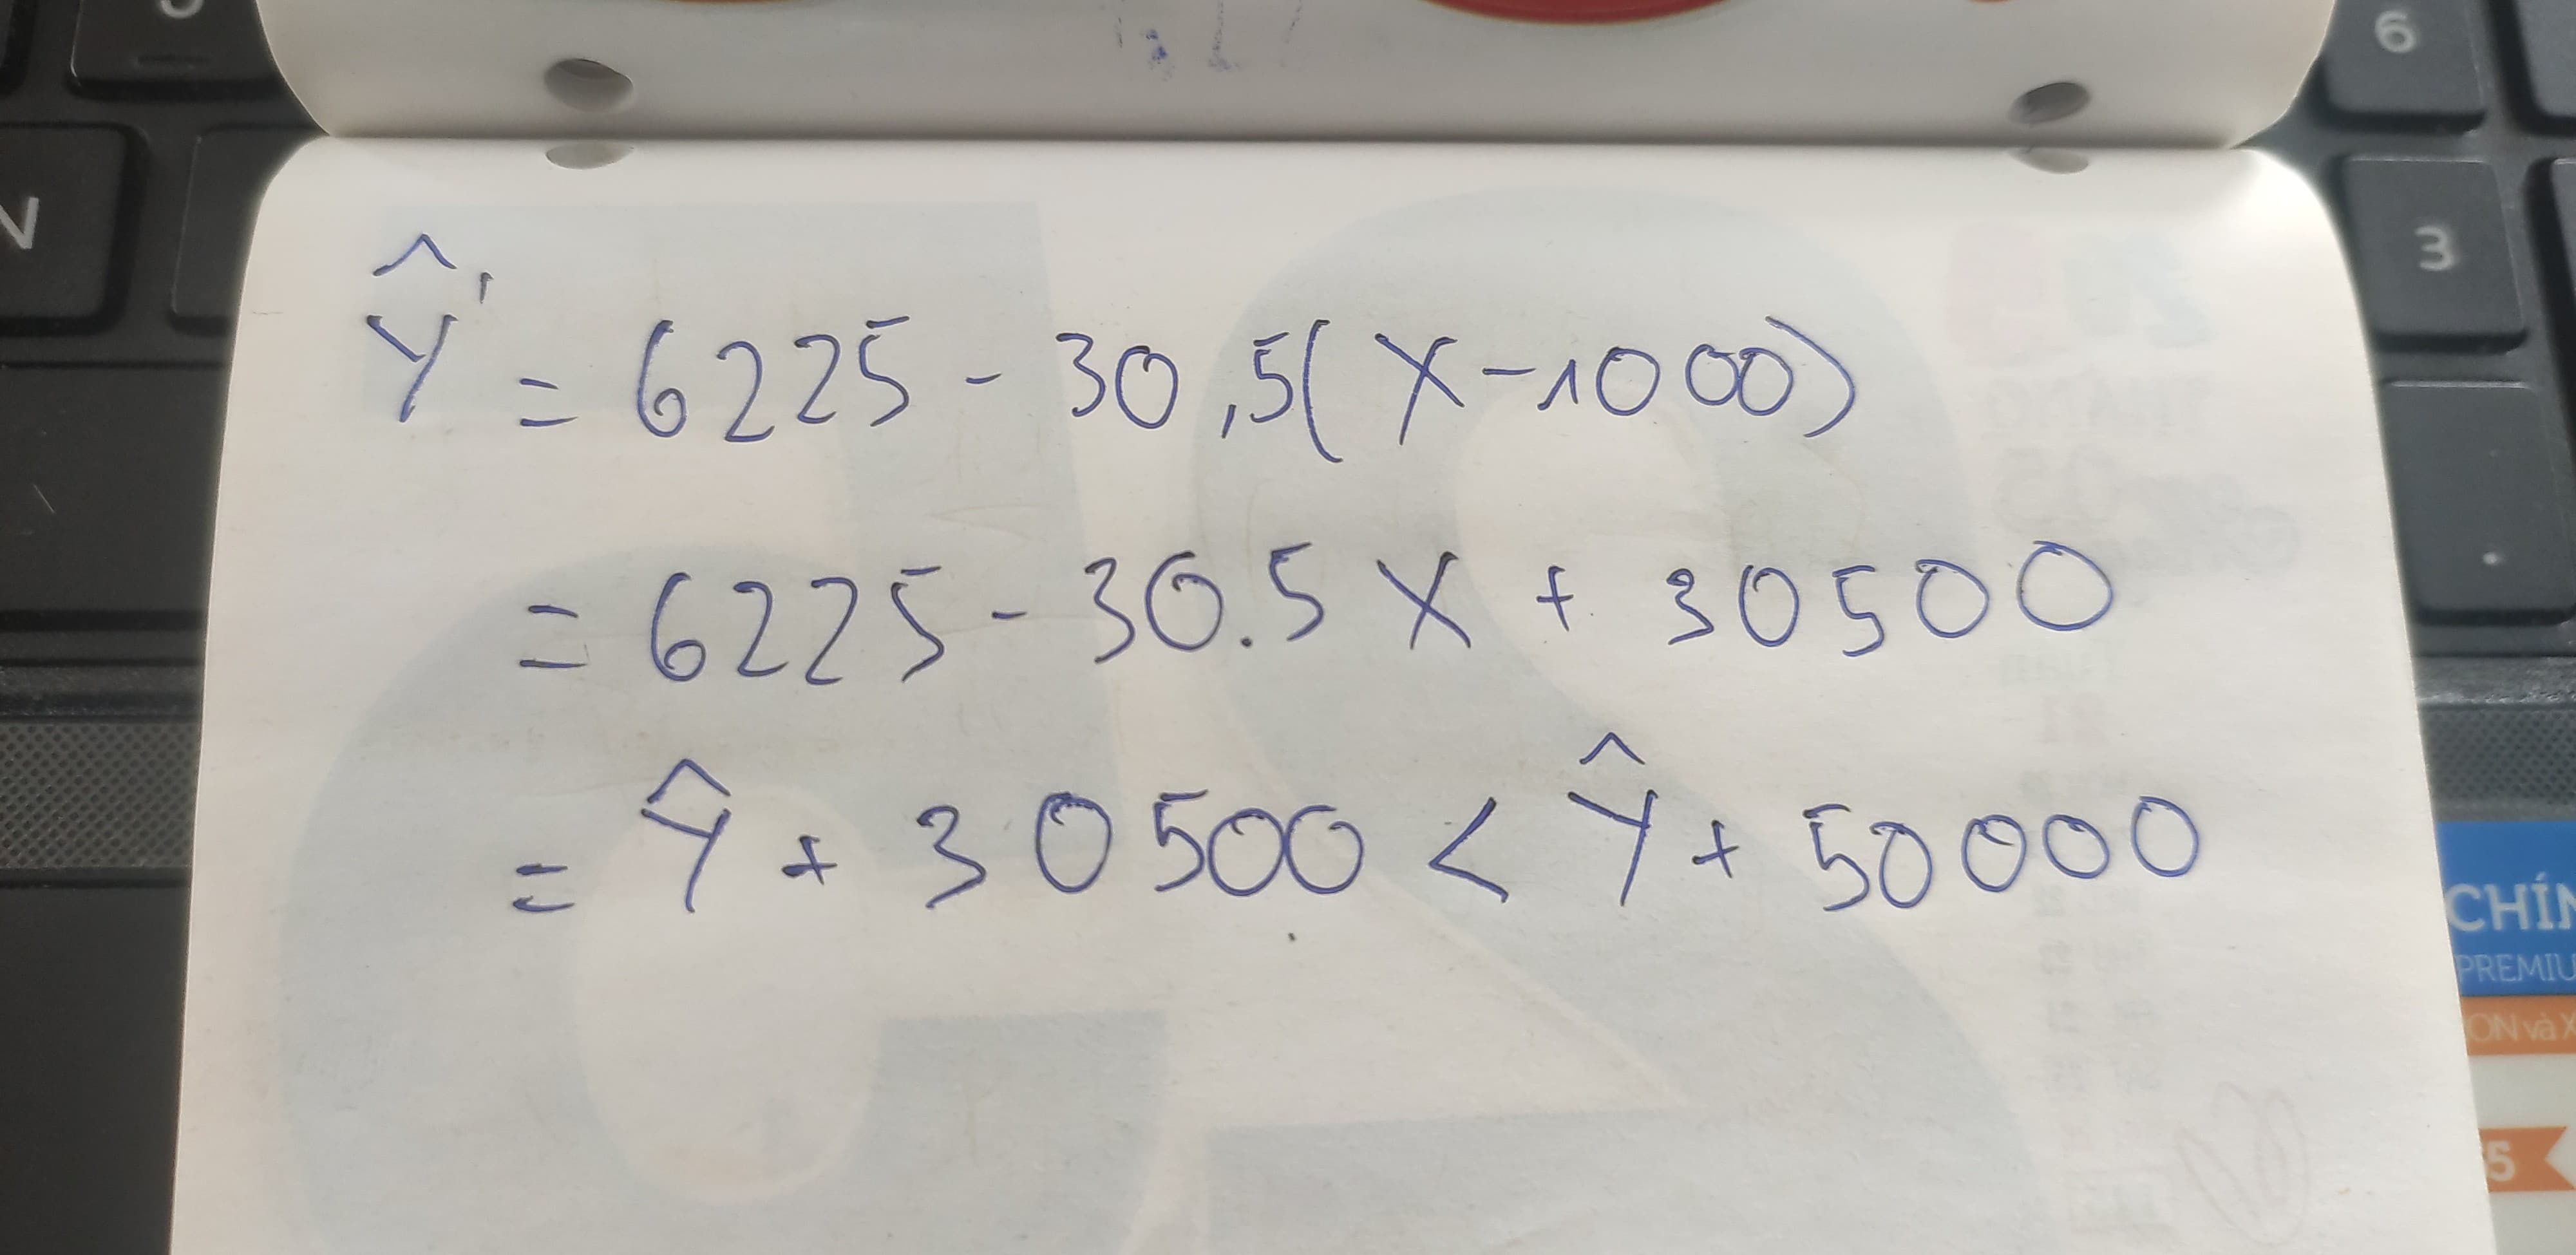 6
N
3
Ŷ' = 6225 - 30,5(X-1000)
= 6225 - 30.5 X + 30500
= Ŷ + 30500 < Ŷ + 50000
CHÍN
PREMIU
ON và X
5